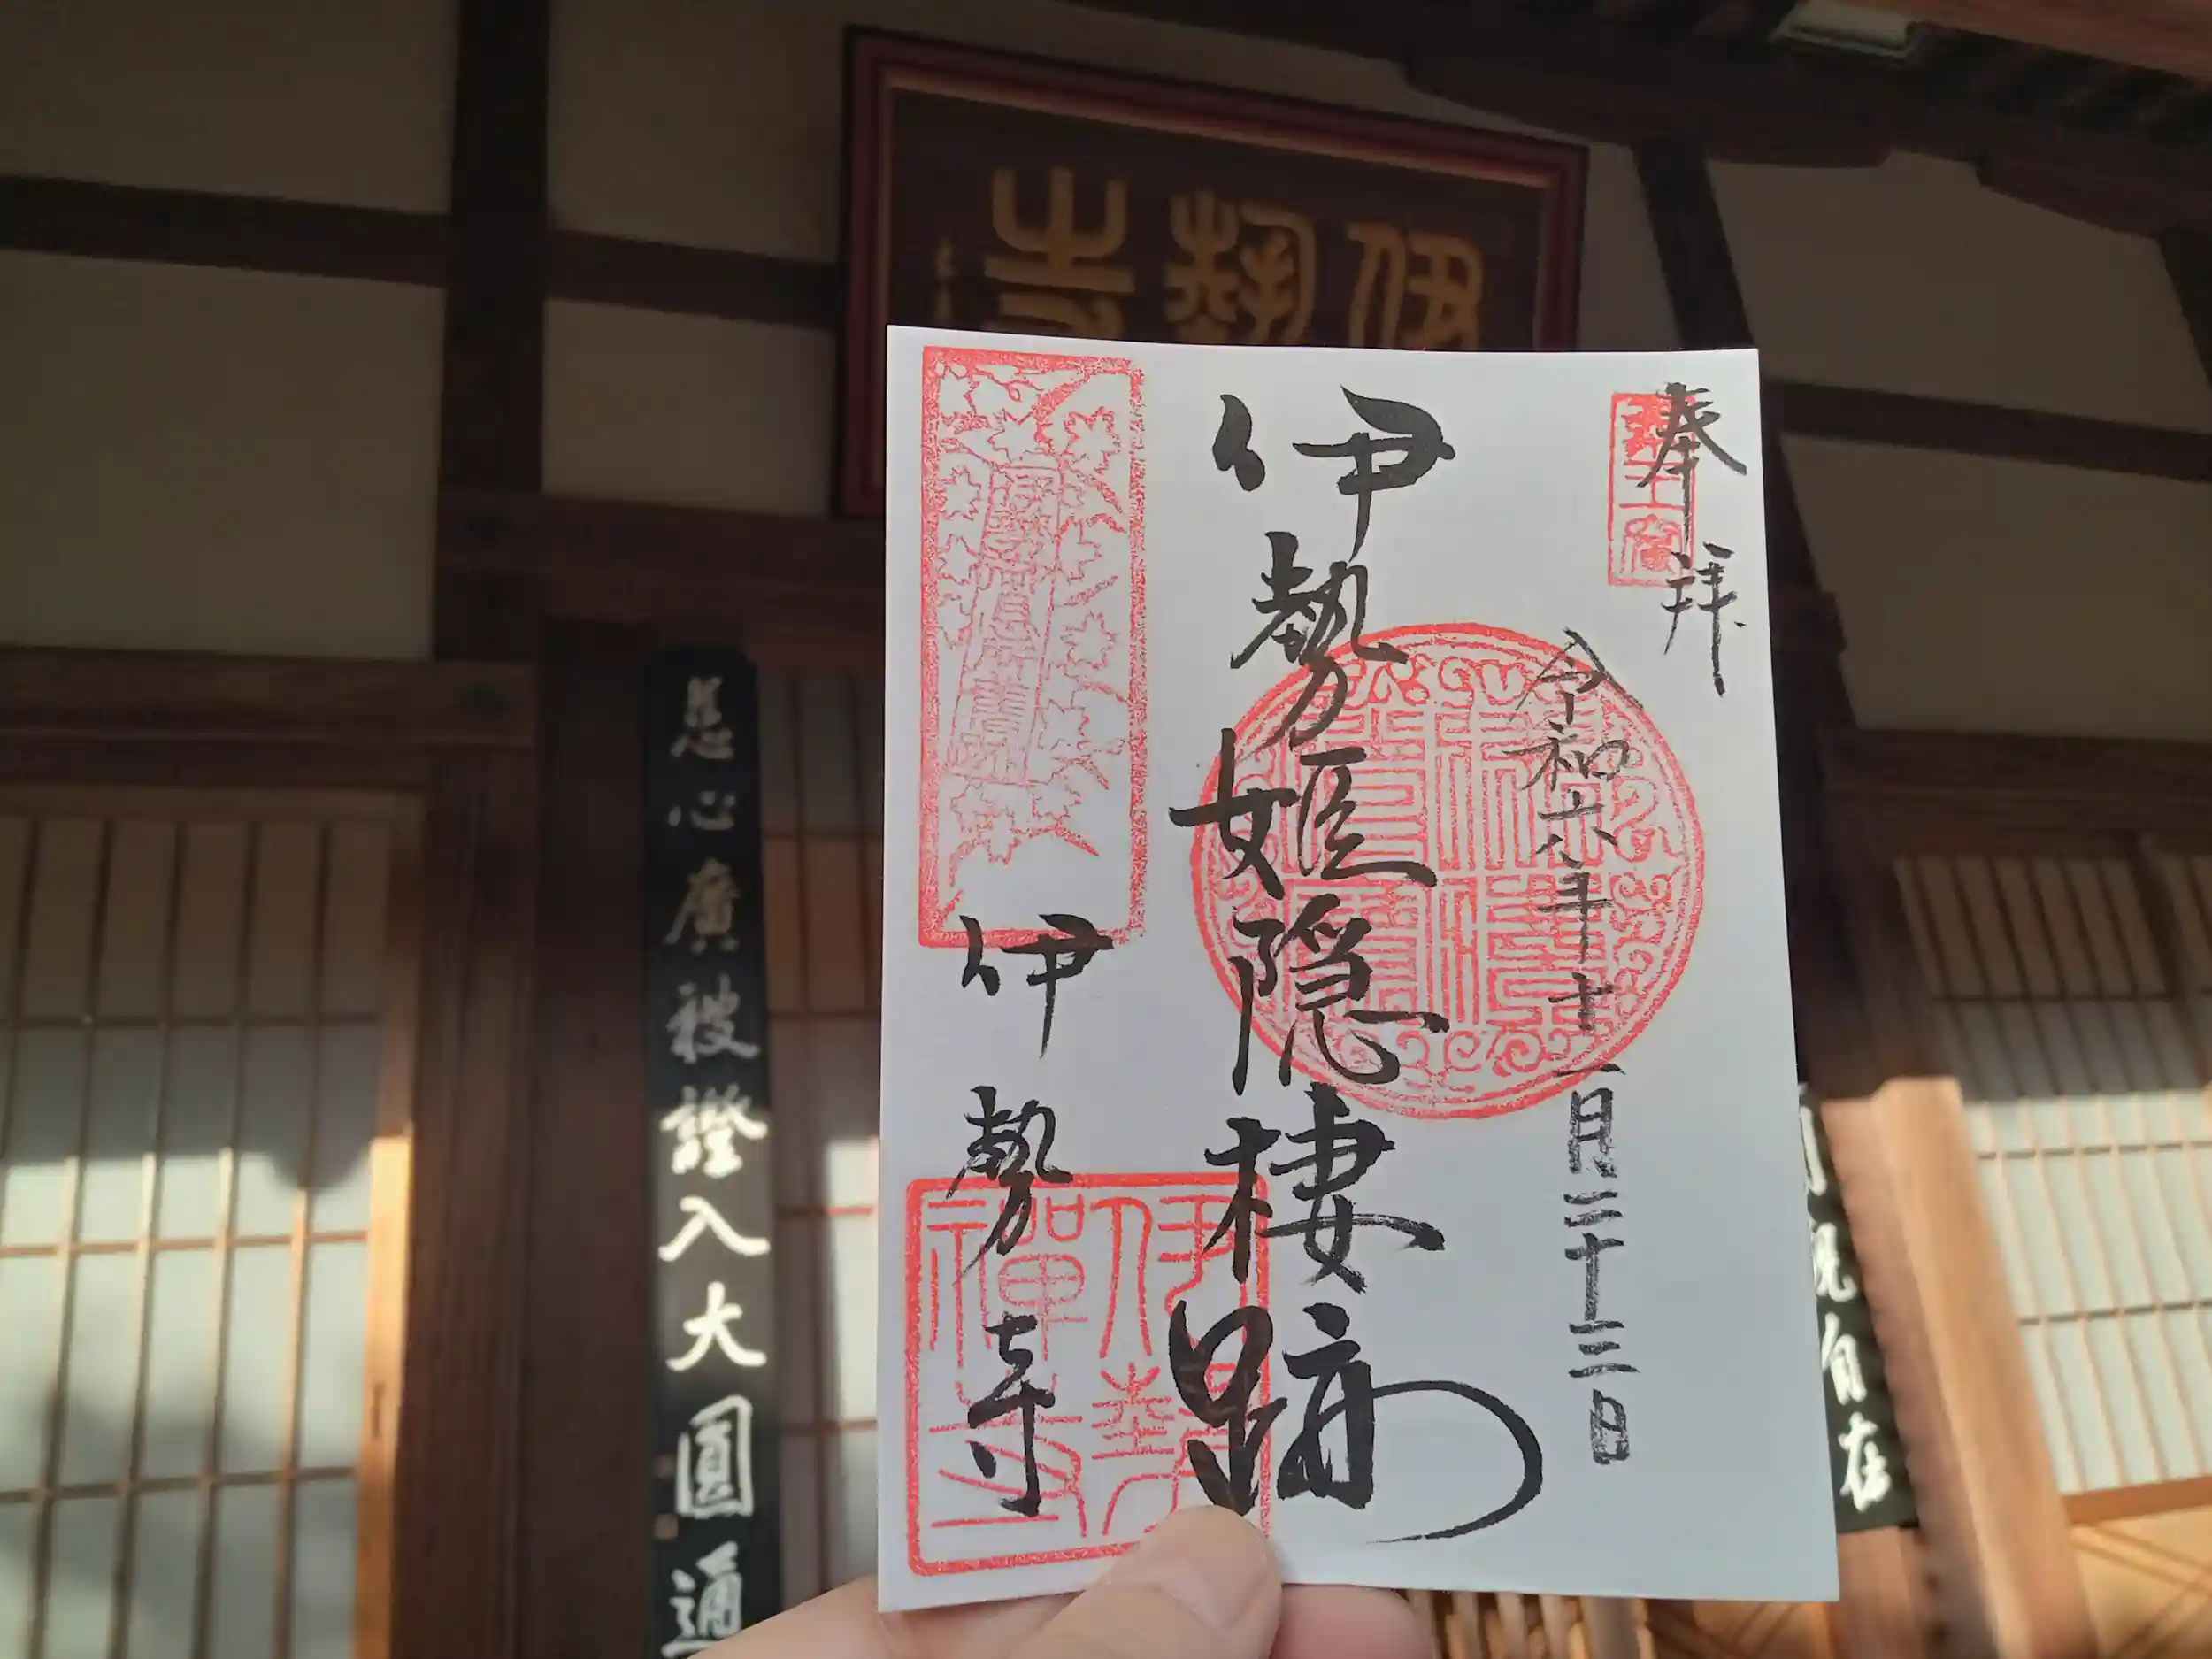 伊勢寺
奉拝
令和六年十一月二十三日
伊勢姫隠棲跡
伊勢寺
伊勢禅寺
慈心廣被證入大圓通
観自在